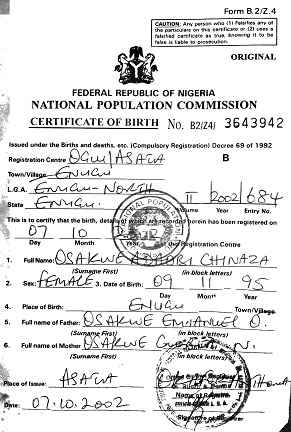 Form B.2/Z.4
CAUTION: Any person who (1) Falsifies any of
the particulars on this certificate or (2) uses a
falsified certificate as true, knowing it to be
false is liable to prosecution.
ORIGINAL
FEDERAL REPUBLIC OF NIGERIA
NATIONAL POPULATION COMMISSION
CERTIFICATE OF BIRTH No. B2/Z4/ 3643942
Issued under the Births and deaths, etc. (Compulsory Registration) Decree 69 of 1992
Registration Centre OGUI/ASATA B
Town/Village ENUGU
L.G.A. ENUGU-NORTH
State ENUGU. II 2002/684
Volume Year Entry No.
This is to certify that the birth, details of which are recorded herein has been registered on
07 10 2002 at this Registration Centre
Day Month Year
1. Full Name: OSAKWE CHINAZA
(Surname First) (in block letters)
2. Sex: FEMALE 3. Date of Birth: 09 11 95
Day Month Year
4. Place of Birth: ENUGU Town/Village
5. Full name of Father: OSAKWE EMMANUEL O.
(Surname First) (in block letters)
6. Full name of Mother OSAKWE N.
(Surname First) (in block letters)
Place of Issue: ASATA
Name of Registrar
Date: 07.10.2002
Signature of Registrar